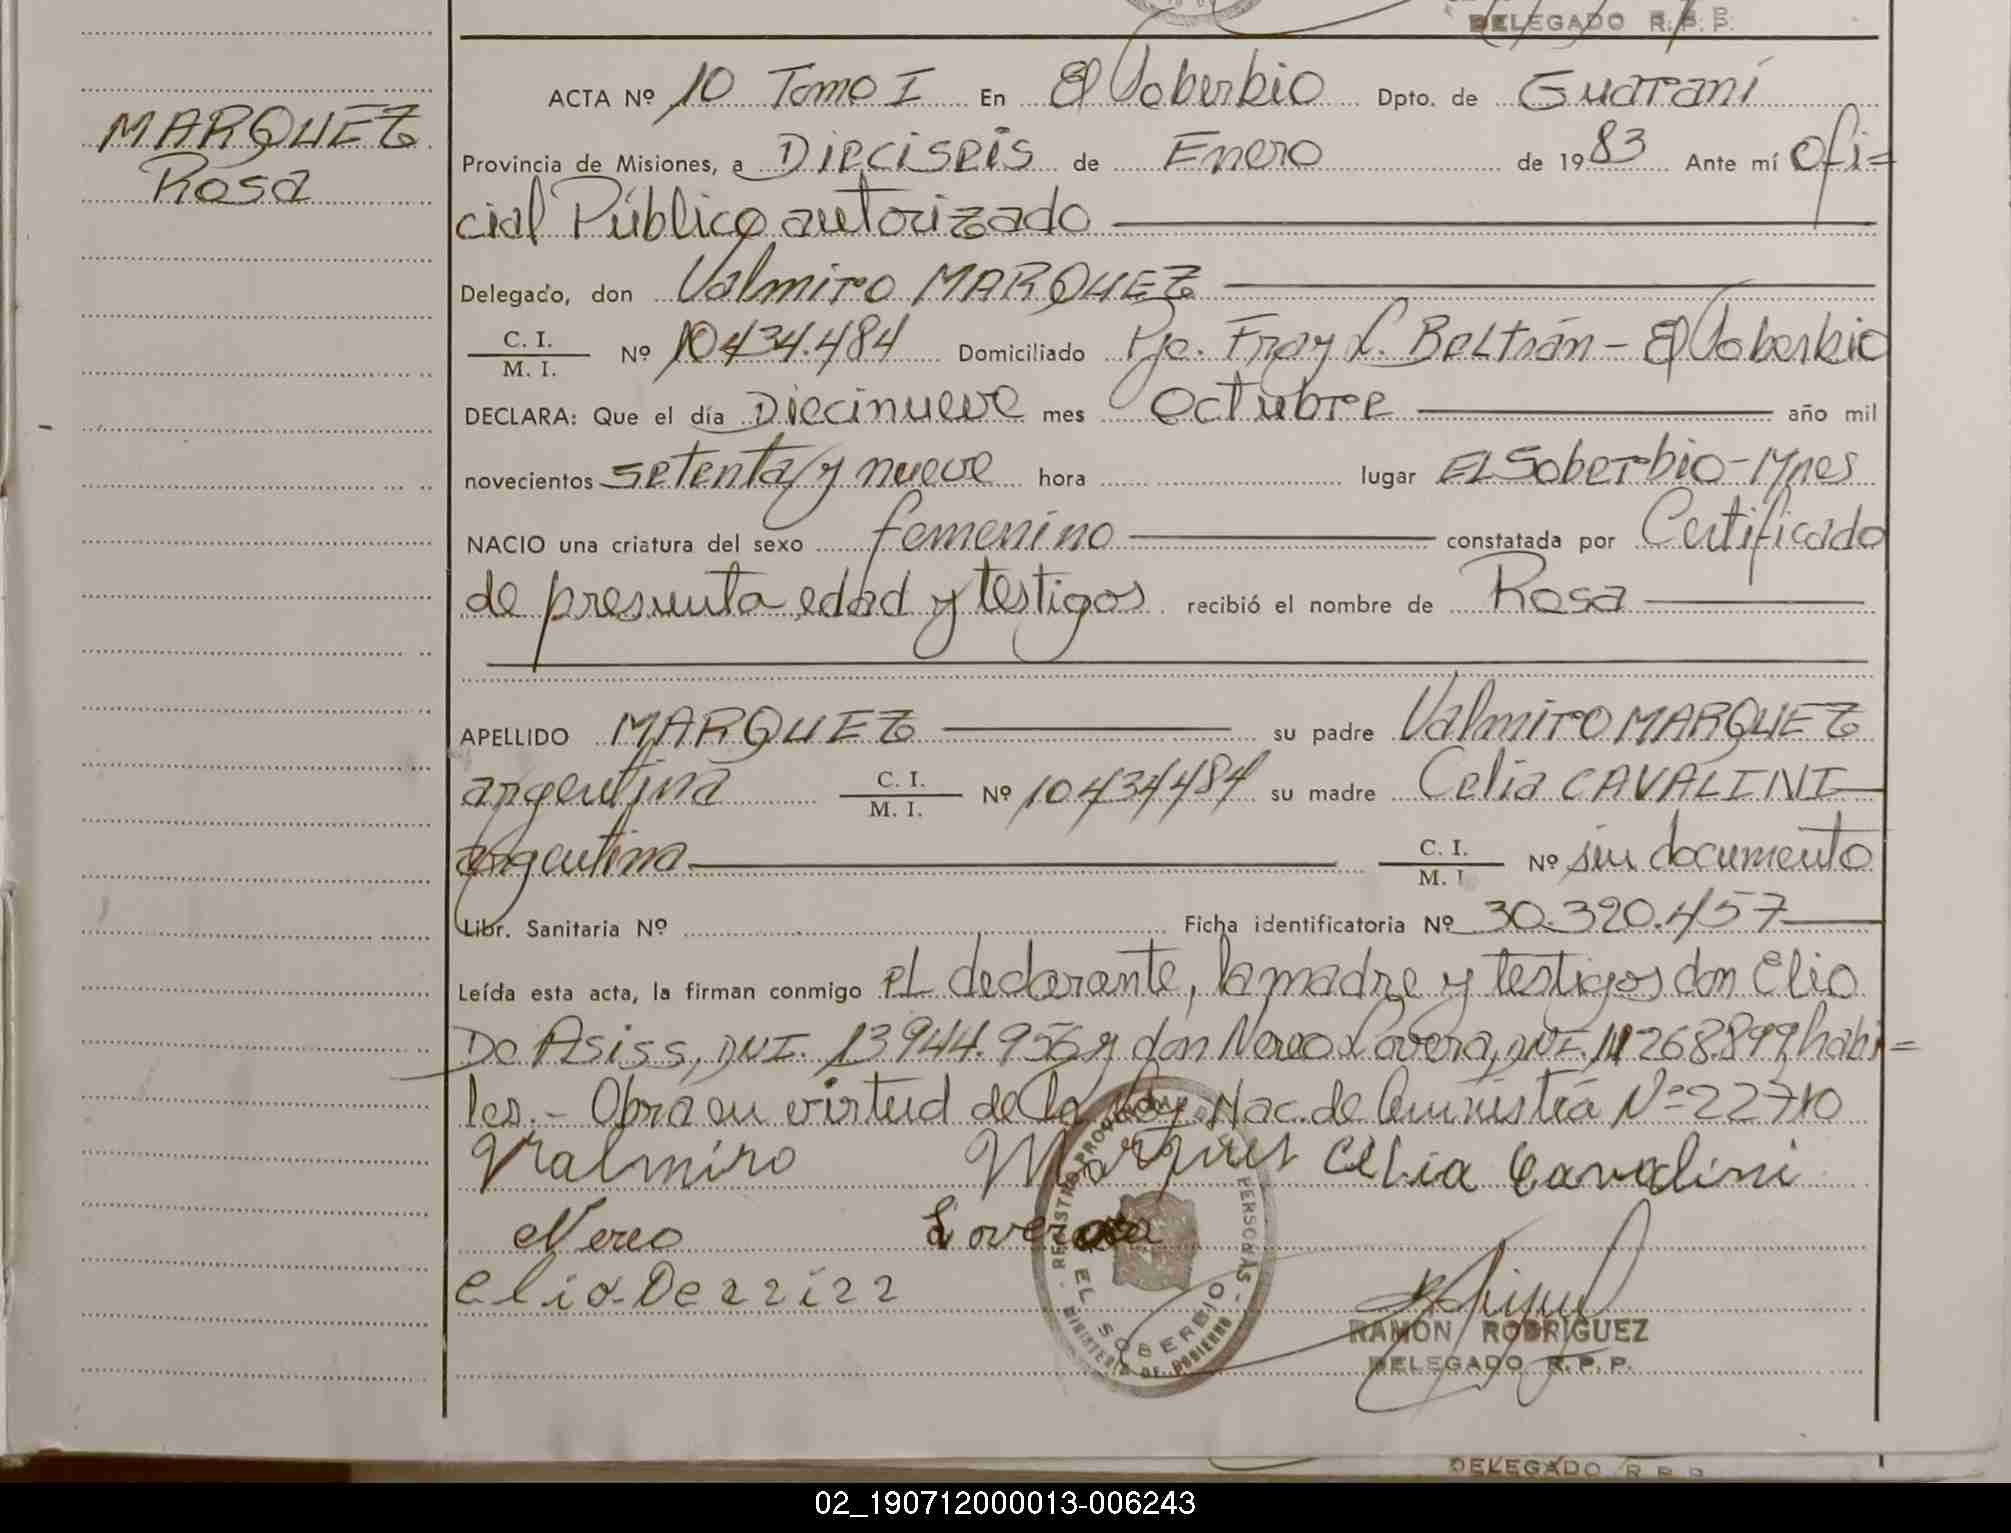 DELEGADO R. P. P.
ACTA Nº 10 Tomo I En El Soberbio Dpto. de Guaraní
MARQUEZ
Rosa
Provincia de Misiones, a Dieciseis de Enero de 1983 Ante mí Ofi=
cial Público autorizado
Delegado, don Valmiro MARQUEZ
C. I.
M. I. Nº 10434.484 Domiciliado Pje. Fray L. Beltrán - El Soberbio
DECLARA: Que el día Diecinueve mes Octubre año mil
novecientos setenta y nueve hora lugar El Soberbio - Mnes
NACIO una criatura del sexo femenino constatada por Certificado
de presunta edad y testigos recibió el nombre de Rosa
APELLIDO MARQUEZ su padre Valmiro MARQUEZ
argentina C. I.
M. I. Nº 10434484 su madre Celia CAVALINI
argentina C. I.
M. I Nº sin documento
Libr. Sanitaria Nº Ficha identificatoria Nº 30.320.457
Leída esta acta, la firman conmigo el declarante, la madre y testigos don Elio
De Asiss, DNI. 13944.956 y don Nereo Lovera, DNI. 11268.899, habi=
les. - Obra en virtud de la Ley Nac. de Amnistía Nº 22710
Valmiro Marques Celia Cavalini
Nereo Lovera
elio
REGISTRO PROVINCIAL DE LAS PERSONAS
EL SOBERBIO
MINISTERIO DE GOBIERNO
RAMON RODRIGUEZ
DELEGADO R. P. P.
DELEGADO R. P. P.
02_190712000013-006243